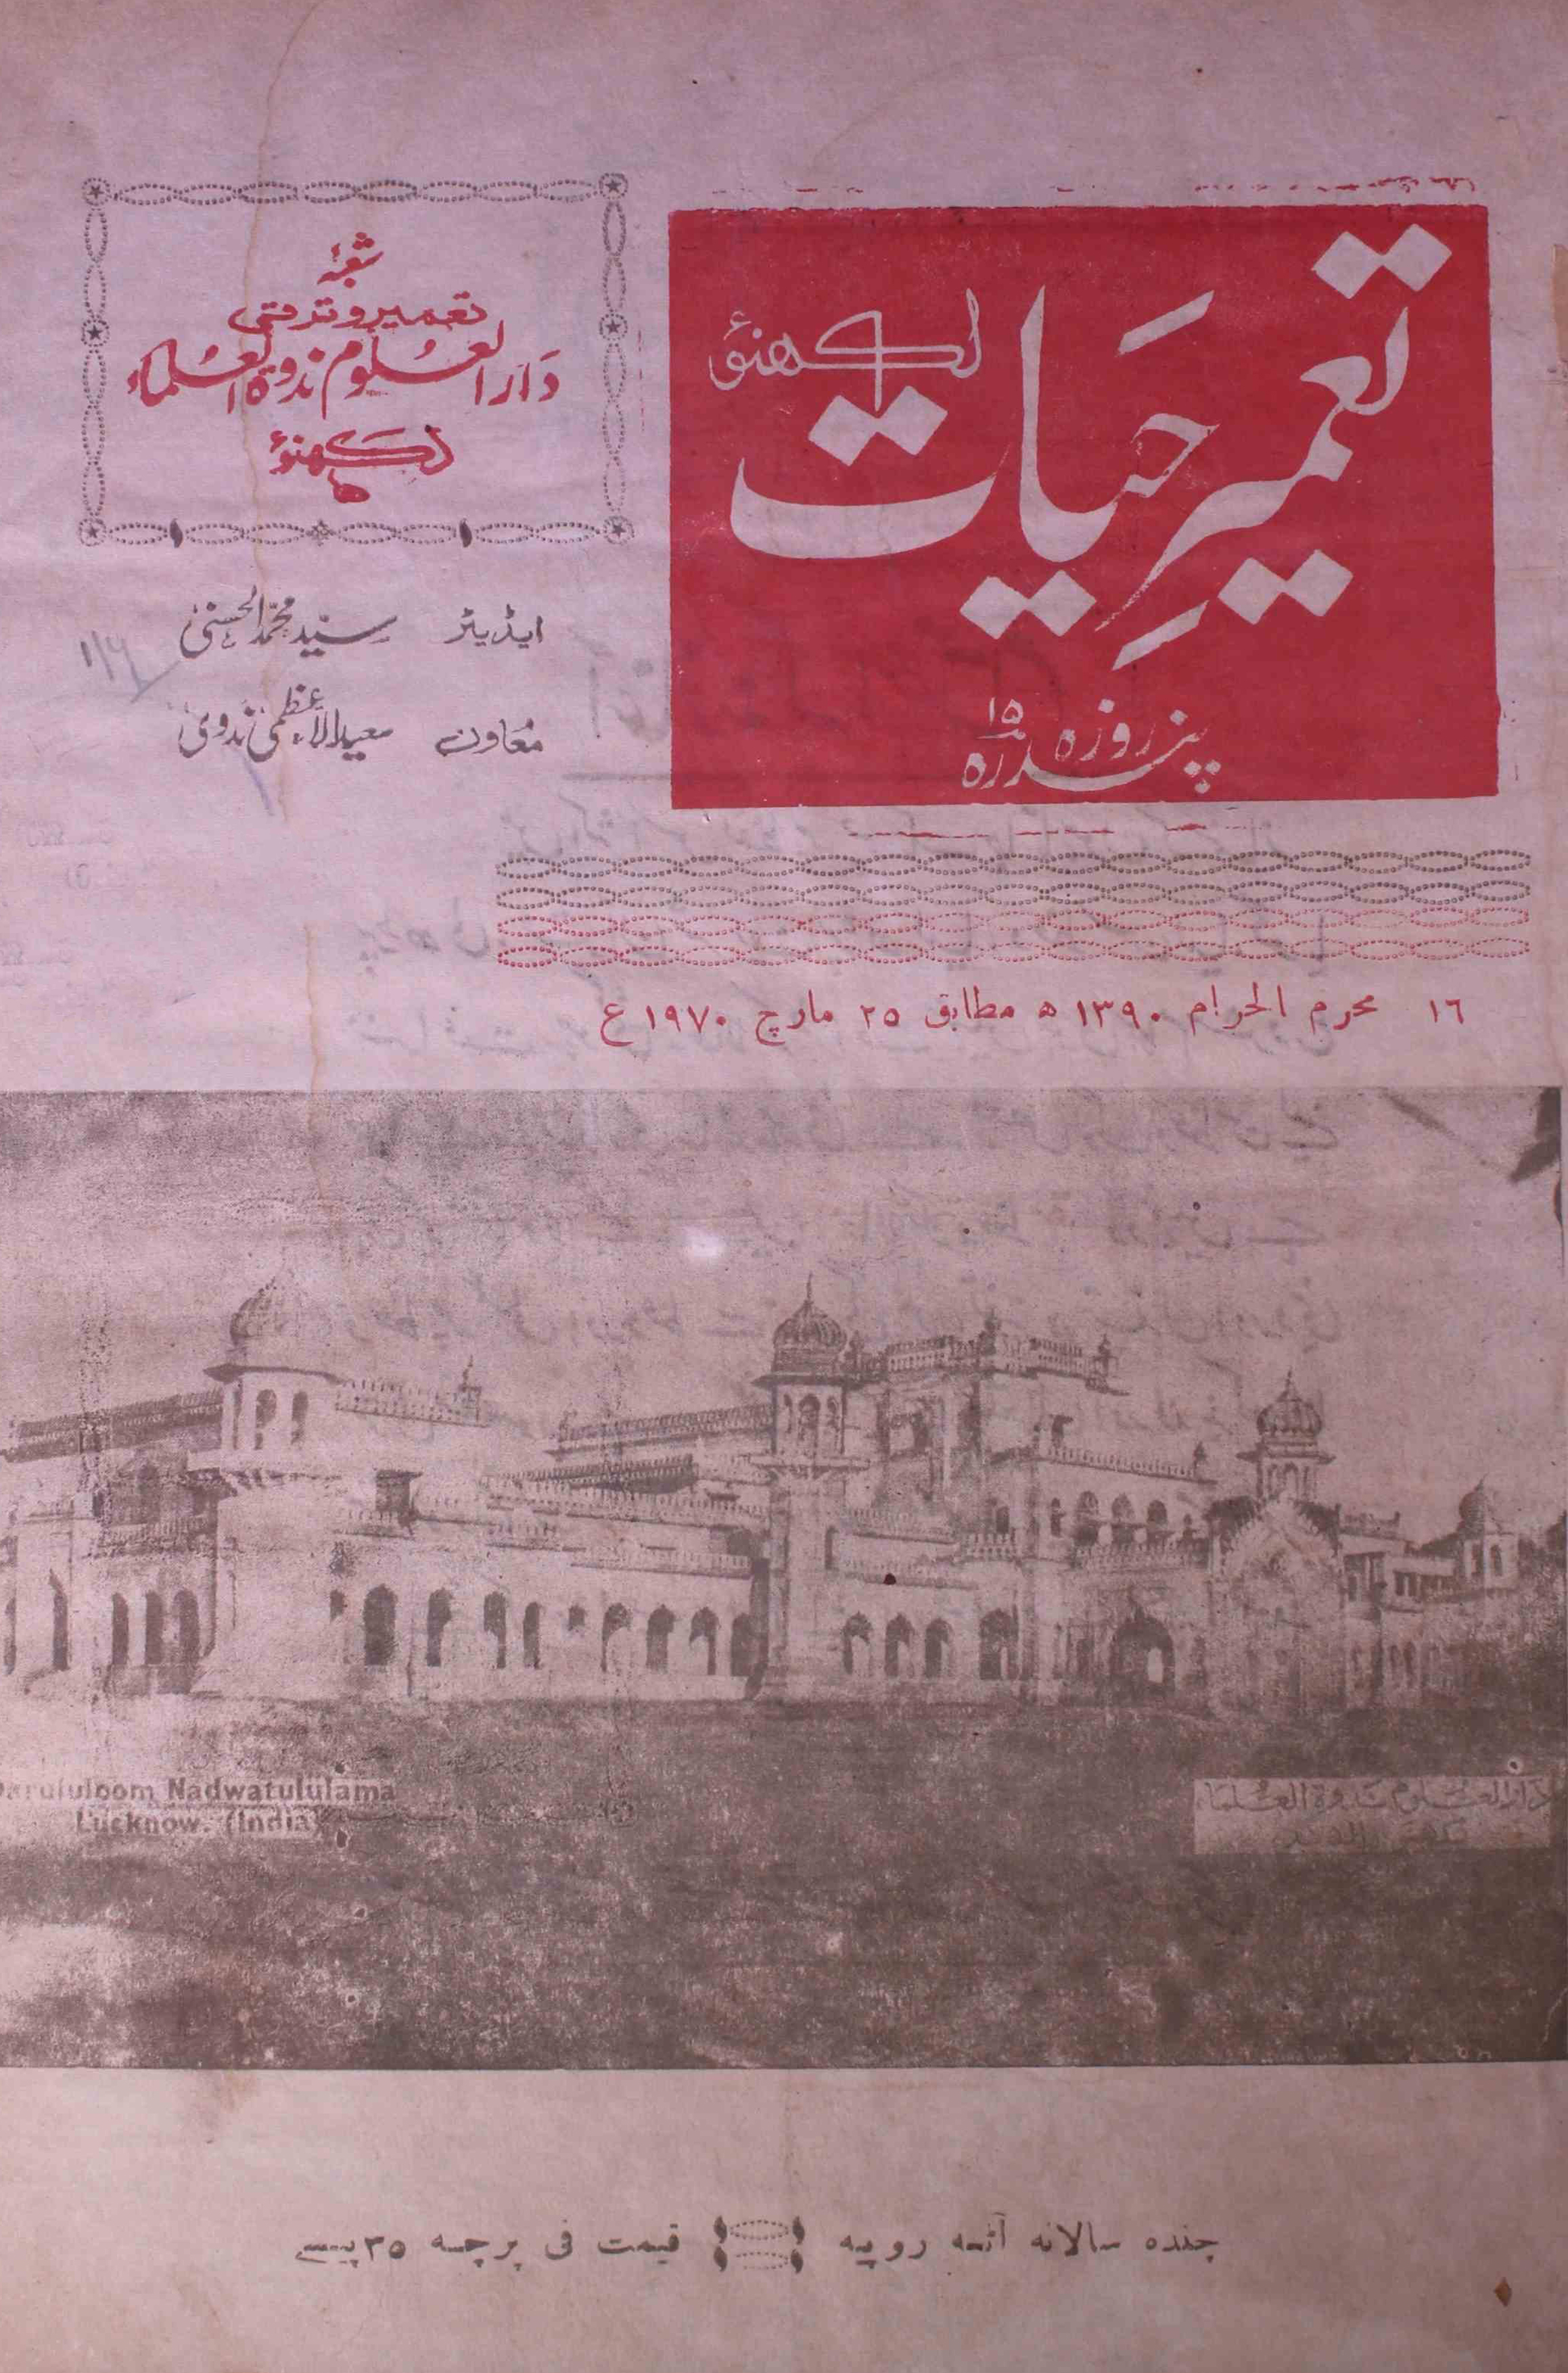 تعمیرِ حیات
لکھنؤ
پندرہ روزہ
۱۵
شعبۂ
تعمیر و ترقی
دارالعلوم ندوۃ العلماء
لکھنؤ
ایڈیٹر سید محمد الحسنی
معاون سعید الاعظمی ندوی
۱۶ محرم الحرام ۱۳۹۰ھ مطابق ۲۵ مارچ ۱۹۷۰ع
Darululoom Nadwatululama
Lucknow. (India)
دارالعلوم ندوة العلماء
لكهنؤ الهند
چندہ سالانہ آٹھ روپیہ قیمت فی پرچہ ۳۵ پیسے